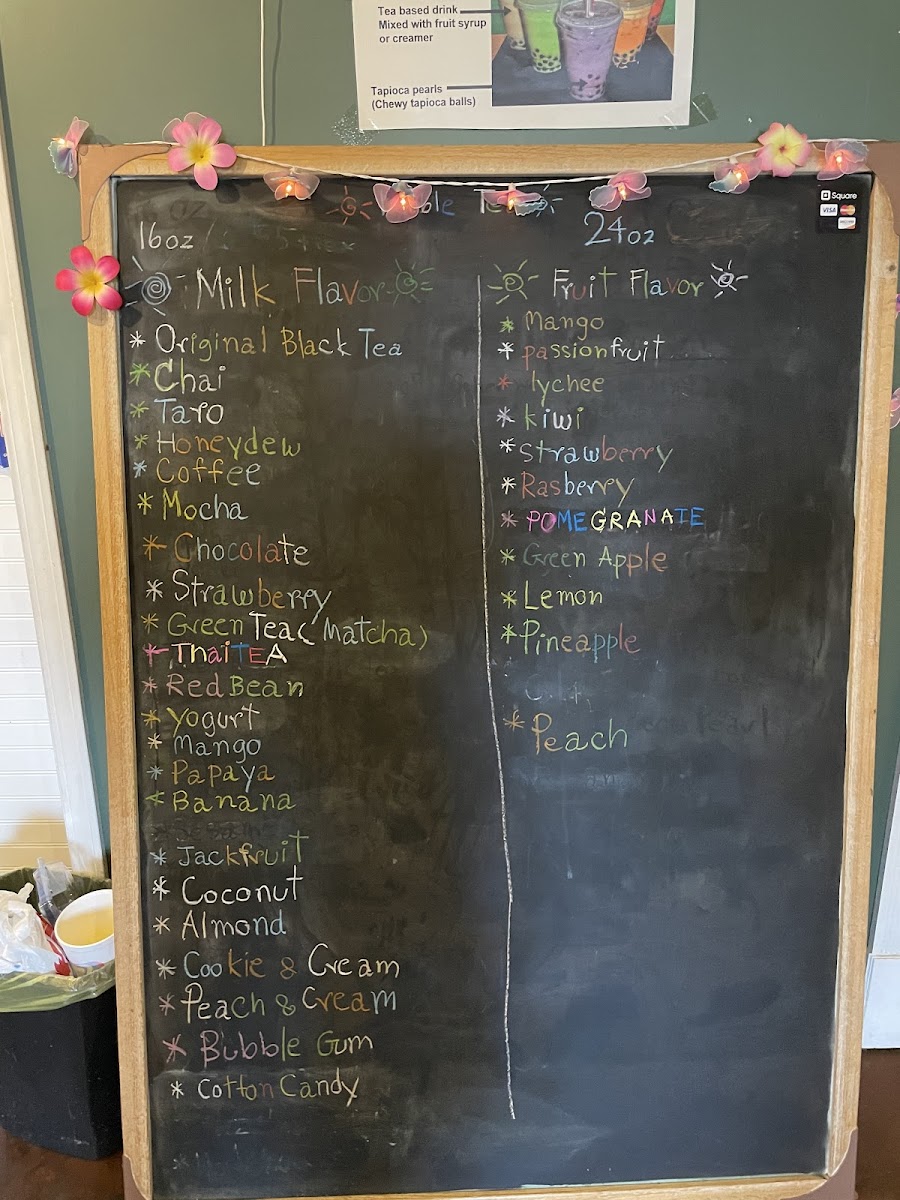 Tea based drink
Mixed with fruit syrup
or creamer
Tapioca pearls
(Chewy tapioca balls)
Square
VISA
16oz
24oz
Milk Flavor
* Original Black Tea
* Chai
* Taro
* Honeydew
* Coffee
* Mocha
* Chocolate
* Strawberry
* Green Tea (Matcha)
* Thai TEA
* Red Bean
* Yogurt
* Mango
* Papaya
* Banana
* Jackfruit
* Coconut
* Almond
* Cookie & Cream
* Peach & Cream
* Bubble Gum
* Cotton Candy
Fruit Flavor
* Mango
* passionfruit
* lychee
* kiwi
* Strawberry
* Rasberry
* POMEGRANATE
* Green Apple
* Lemon
* Pineapple
* Peach